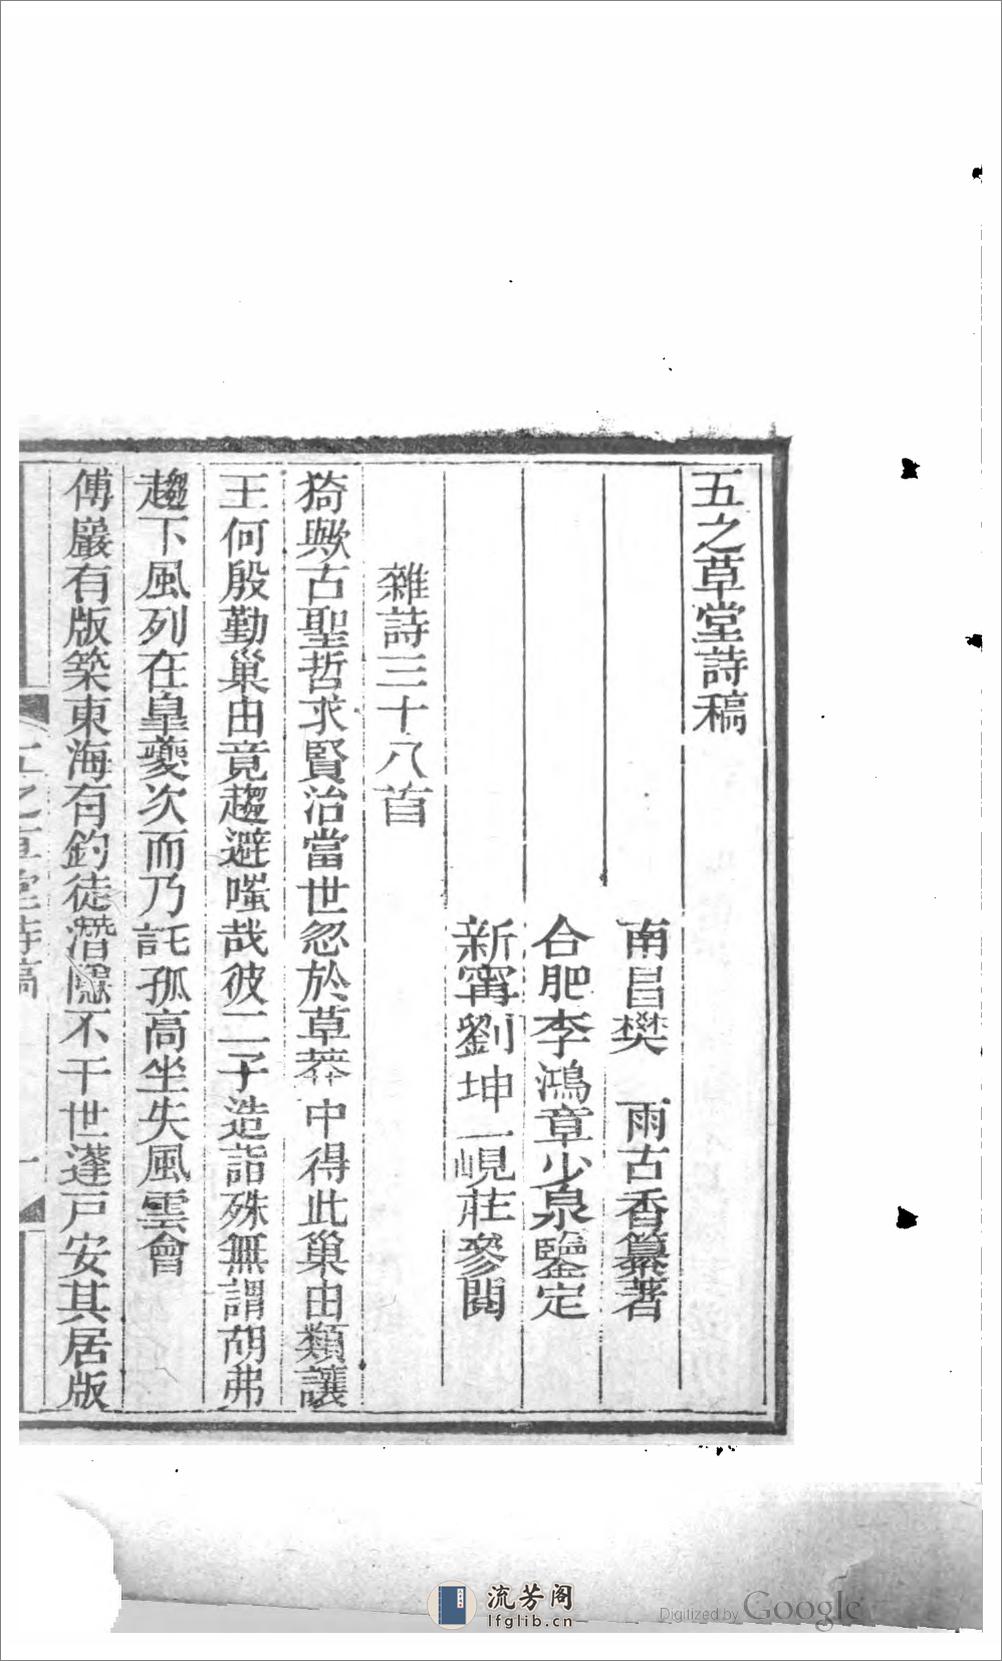 五之草堂詩稿
南昌樊　雨古香纂著
合肥李鴻章少泉鑒定
新甯劉坤一峴莊參閱
雜詩三十八首
猗歟古聖哲求賢治當世忽於草莽中得此巢由類讓
王何殷勤巢由竟趨避嗤哉彼二子造詣殊無謂胡弗
趨下風列在皐夔次而乃託孤高坐失風雲會
傅巖有版築東海有釣徒潛隱不干世蓬戸安其居版
五之草堂詩稿
一
流芳阁
lfglib.cn
Digitized by Google